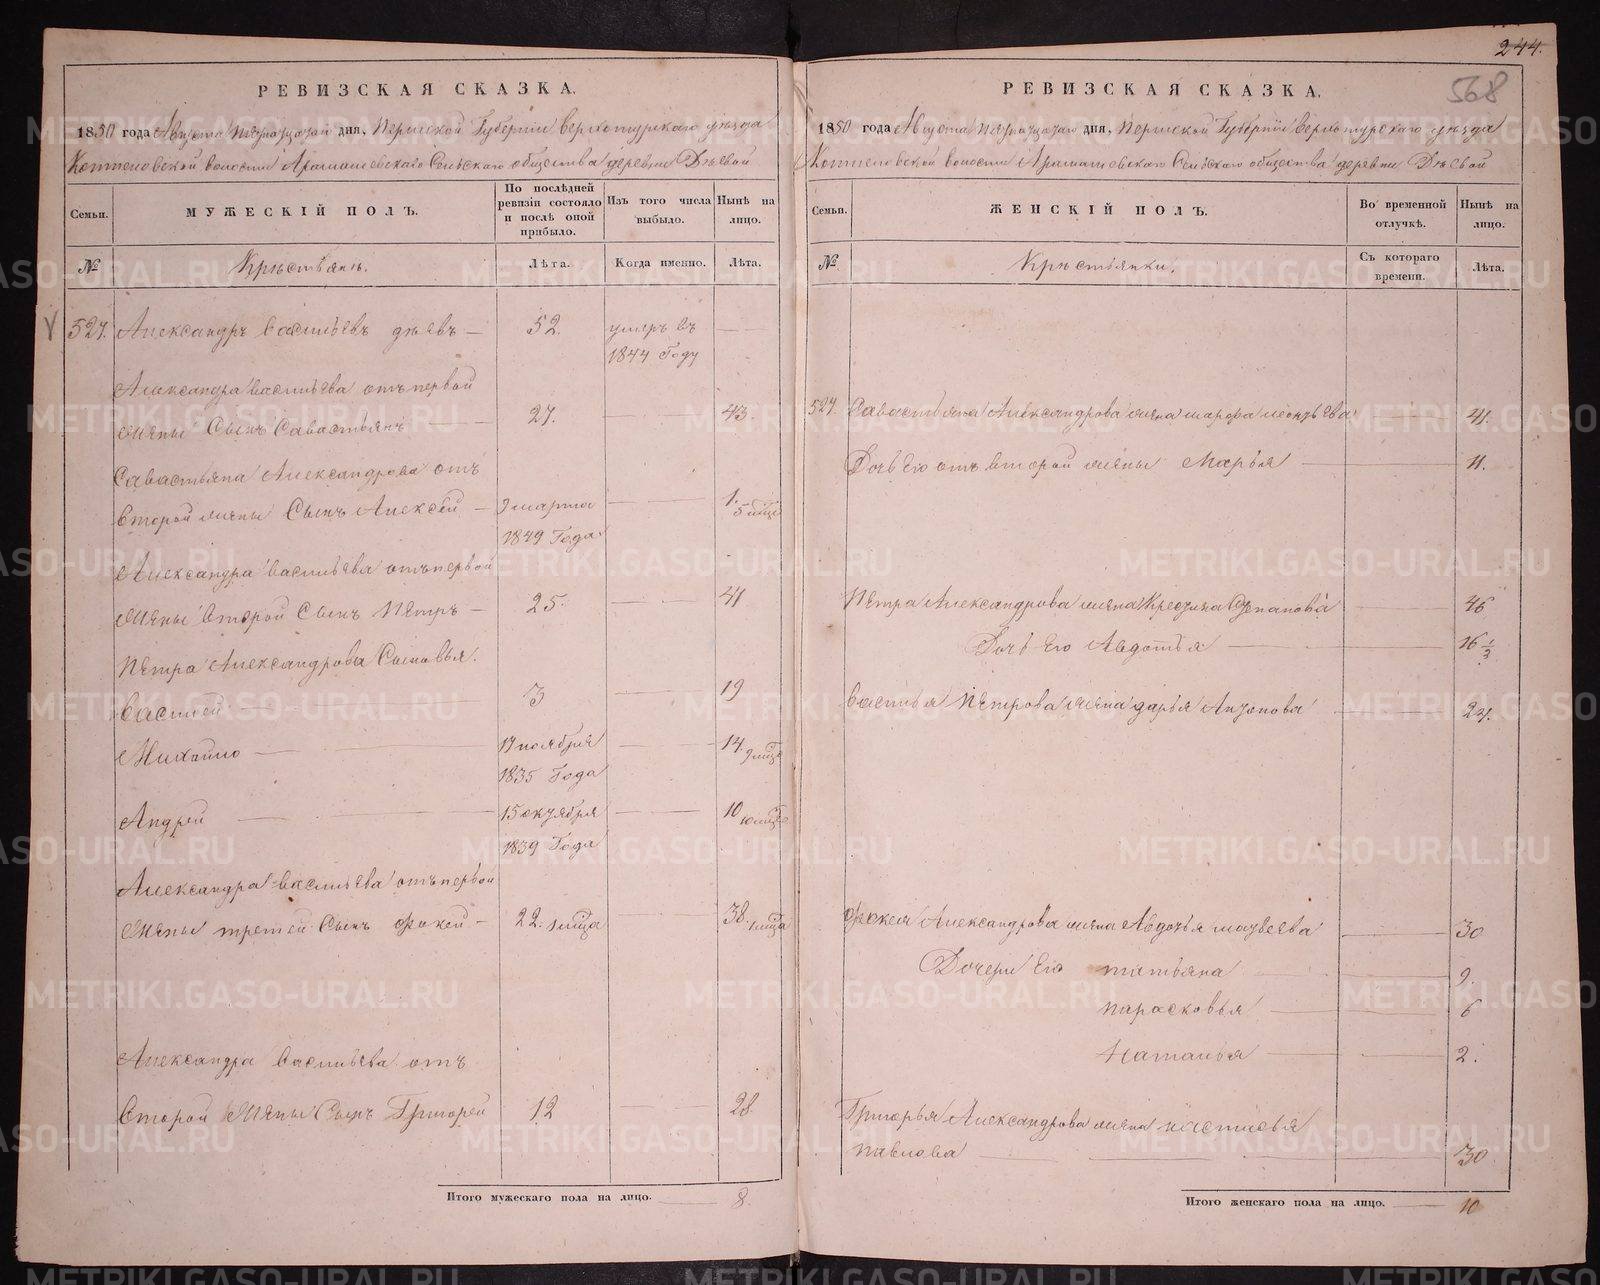 244.
568
РЕВИЗСКАЯ СКАЗКА.
1850 года Августа пятнадцатаго дня, Пермской Губерніи Верхотурскаго уѣзда
волости Арамашевскаго Сельскаго общества деревни Дѣевой
Семьи.
МУЖЕСКІЙ ПОЛЪ.
По послѣдней ревизіи состояло и послѣ оной прибыло.
Изъ того числа выбыло.
Нынѣ на лицо.
№
Крѣстьянѣ.
Лѣта.
Когда именно.
Лѣта.
527. Александръ Васильевъ дѣевъ — 52. умеръ въ
1844 Году
Александра Васильева отъ первой
жены Сынъ Савастьянъ 27. 43.
Савастьяна Александрова отъ
второй жены Сынъ Алексей — 9 марта 1. 5 мце
1849 Года
Александра Васильева отъ первой
жены второй Сынъ Пётръ — 25. 41
Пётра Александрова Сыновья.
Василей 3 19
Михайло 17 ноября 14. 9 мце
1835 Года
Андрей 15 октября 10 10 мце
1839 Года
Александра Васильева отъ первой
жены третей Сынъ Фокей — 22. 38.
Александра Васильева отъ
второй жены Сынъ Григорей 12 28.
Итого мужескаго пола на лицо. 8.
РЕВИЗСКАЯ СКАЗКА.
1850 года Августа пятнадцатаго дня, Пермской Губерніи Верхотурскаго уѣзда
волости Арамашевскаго Сельскаго общества деревни Дѣевой
Семьи.
ЖЕНСКІЙ ПОЛЪ.
Во временной отлучкѣ.
Нынѣ на лицо.
№
Крѣстьянки.
Съ котораго времени.
Лѣта.
527. Савастьяна Александрова жена марфа 41.
Дочь Его отъ второй жены Марья 11.
Пётра Александрова жена Степанова 46
Дочь Его Авдотья 16 1/3
Василья Пётрова жена дарья Антонова
Фокея Александрова жена Авдотья матвеева 30
Дочери Его татьяна 9.
парасковья 6
Наталья 2.
Григорья Александрова жена настасья
павлова 30
Итого женскаго пола на лицо. 10
METRIKI.GASO-URAL.RU